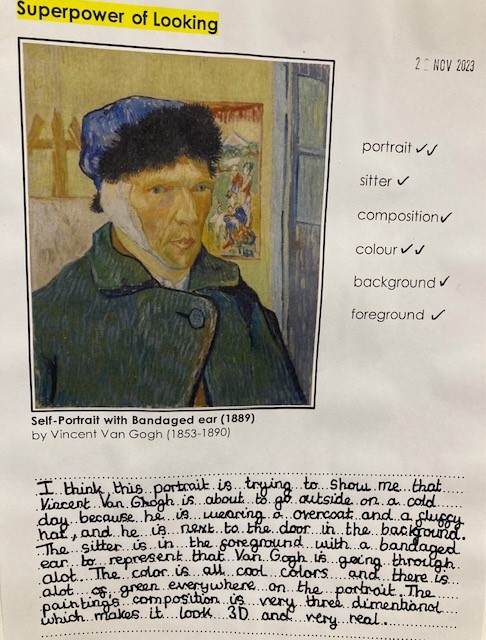 Superpower of Looking
NOV 2023
portrait ✓✓
sitter ✓
composition ✓
colour ✓✓
background ✓
foreground ✓
Self-Portrait with Bandaged ear (1889)
by Vincent Van Gogh (1853-1890)
I think this portrait is trying to show me that
Vincent Van Ghogh is about to go outside on a cold
day because he is wearing a overcoat and a fluffy
hat, and he is next to the door in the background.
The sitter is in the foreground with a bandaged
ear to represent that Van Gogh is going through
alot. The color is all cool colors and there is
alot of green everywhere on the portrait. The
paintings composition is very three dimentianal
which makes it look 3D and very real.